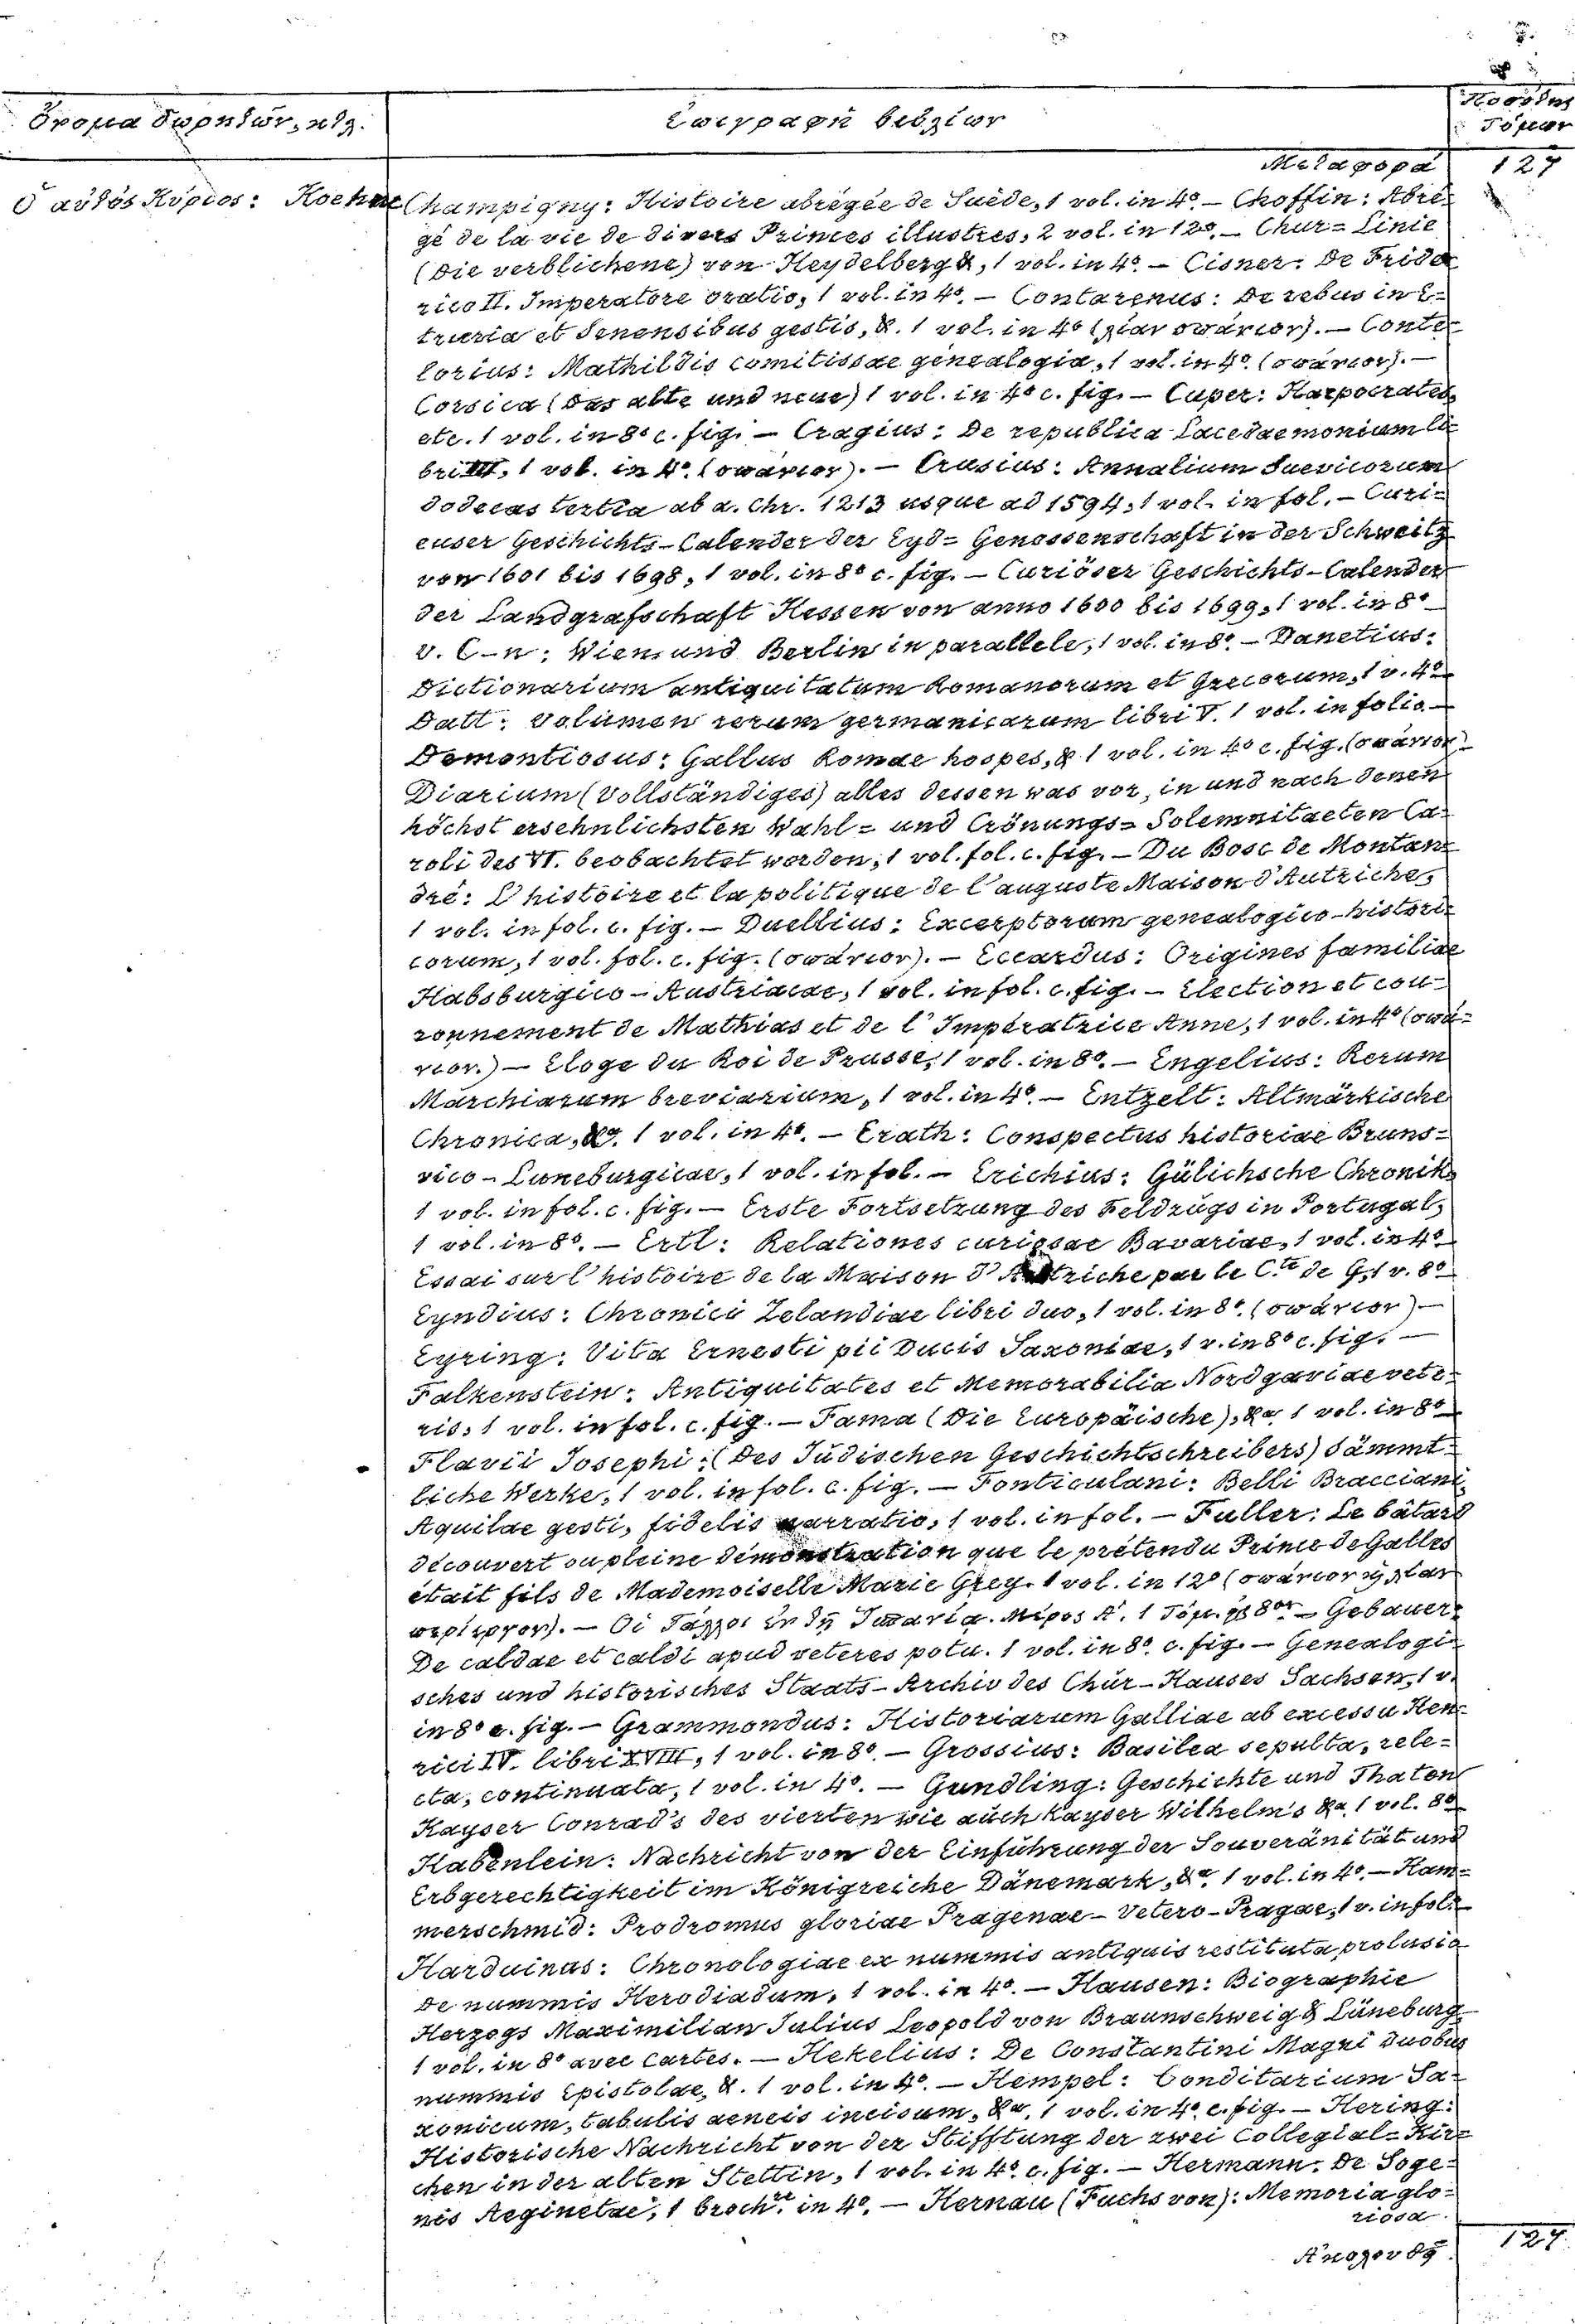 Ὄνομα δωρητῶν, κτλ.
Ἐπιγραφὴ βιβλίων
Ποσότης
Τόμων
Μεταφορὰ 127
Ὁ αὐτὸς Κύριος: Koehne
Champigny: Histoire abrégée de Suède, 1 vol. in 4º. — Choffin: Abré-
gé de la vie de divers Princes illustres, 2 vol. in 12º. — Chur-Linie
(Die verblichene) von Heydelberg &, 1 vol. in 4º. — Cisner: De Fride-
rico II. Imperatore oratio, 1 vol. in 4º. — Contarenus: De rebus in E-
truria et Senensibus gestis, &. 1 vol. in 4º (λίαν σπάνιον). — Conte-
lorius: Mathildis comitissae genealogia, 1 vol. in 4º. (σπάνιον). —
Corsica (Das alte und neue) 1 vol. in 4º c. fig. — Cuper: Harpocrates
etc. 1 vol. in 8º c. fig. — Cragius: De republica Lacedaemonium li-
bri III, 1 vol. in 4º. (σπάνιον). — Crusius: Annalium Suevicorum
dodecas tertia ab a. Chr. 1213 usque ad 1594, 1 vol. in fol. — Curi-
euser Geschichts-Calender der Eyd-Genossenschaft in der Schweitz
von 1601 bis 1698, 1 vol. in 8º c. fig. — Curiöser Geschichts-Calender
der Landgrafschaft Hessen von anno 1600 bis 1699, 1 vol. in 8º —
v. C-n: Wien und Berlin in parallele, 1 vol. in 8º. — Danetius:
Dictionarium antiquitatum Romanorum et Grecorum, 1 v. 4º —
Datt: Volumen rerum germanicarum libri V. 1 vol. in folio —
Demontiosus: Gallus Romae hospes, & 1 vol. in 4º c. fig. (σπάνιον)
Diarium (Vollständiges) alles dessen was vor, in und nach denen
höchst ersehnlichsten Wahl- und Crönungs-Solemnitaeten Ca-
roli des VI. beobachtet worden, 1 vol. fol. c. fig. — Du Bosc de Montan-
dré: L'histoire et la politique de l'auguste Maison d'Autriche,
1 vol. in fol. c. fig. — Duellius: Excerptorum genealogico-histori-
corum, 1 vol. fol. c. fig. (σπάνιον). — Eccardus: Origines familiae
Habsburgico-Austriacae, 1 vol. in fol. c. fig. — Election et cou-
ronnement de Mathias et de l'Impératrice Anne, 1 vol. in 4º (σπά-
νιον.) — Eloge du Roi de Prusse, 1 vol. in 8º. — Engelius: Rerum
Marchiarum breviarium, 1 vol. in 4º. — Entzelt: Altmärkische
Chronica, &ª. 1 vol. in 4º. — Erath: Conspectus historiae Bruns-
vico-Luneburgicae, 1 vol. in fol. — Erichius: Gülichsche Chronik,
1 vol. in fol. c. fig. — Erste Fortsetzung des Feldzugs in Portugal,
1 vol. in 8º. — Ertl: Relationes curiosae Bavariae, 1 vol. in 4º —
Essai sur l'histoire de la Maison d'Autriche par le C.te de G., 1 v. 8º —
Eyndius: Chronici Zelandiae libri duo, 1 vol. in 8º. (σπάνιον) —
Eyring: Vita Ernesti pii Ducis Saxoniae, 1 v. in 8º c. fig. —
Falkenstein: Antiquitates et Memorabilia Nordgaviae vete-
ris, 1 vol. in fol. c. fig. — Fama (Die Europäische), &ª 1 vol. in 8º —
Flavii Josephi: (Des Jüdischen Geschichtschreibers) Sämmt-
liche Werke, 1 vol. in fol. c. fig. — Fonticulani: Belli Bracciani
Aquilae gesti, fidelis narratio, 1 vol. in fol. — Fuller: Le bâtard
découvert ou pleine démonstration que le prétendu Prince de Galles
était fils de Mademoiselle Marie Grey. 1 vol. in 12º (σπάνιον ϗ λίαν
περίεργον). — Οἱ Γάλλοι ἐν τῇ Ἰταλίᾳ. Μέρος Α΄. 1 Τόμ. εἰς 8ον — Gebauer:
De caldae et caldi apud veteres potu. 1 vol. in 8º. c. fig. — Genealogi-
sches und historisches Staats-Archiv des Chur-Hauses Sachsen, 1 v.
in 8º c. fig. — Grammondus: Historiarum Galliae ab excessu Hen-
rici IV. libri XVIII, 1 vol. in 8º. — Grossius: Basilea sepulta, rete-
cta, continuata, 1 vol. in 4º. — Gundling: Geschichte und Thaten
Kayser Conrad's des vierten wie auch Kayser Wilhelm's &ª, 1 vol. 8º —
Haberlein: Nachricht von der Einführung der Souveränität und
Erbgerechtigkeit im Königreiche Dänemark, &ª. 1 vol. in 4º. — Ham-
merschmid: Prodromus gloriae Pragenae-Vetero-Pragae, 1 v. in fol. —
Harduinus: Chronologiae ex nummis antiquis restituta prolusio
de nummis Herodiadum, 1 vol. in 4º. — Hausen: Biographie
Herzogs Maximilian Julius Leopold von Braunschweig & Lüneburg
1 vol. in 8º avec Cartes. — Hekelius: De Constantini Magni duobus
nummis Epistolae, &. 1 vol. in 4º. — Hempel: Conditarium Sa-
xonicum, tabulis aeneis incisum, &ª, 1 vol. in 4º. c. fig. — Hering:
Historische Nachricht von der Stifftung der zwei Collegial-Kir-
chen in der alten Stettin, 1 vol. in 4º. c. fig. — Hermann: De Soge-
nis Aeginetae, 1 broch.re in 4º. — Hernau (Fuchs von): Memoria glo-
riosa
Ἀκολουθεῖ 127